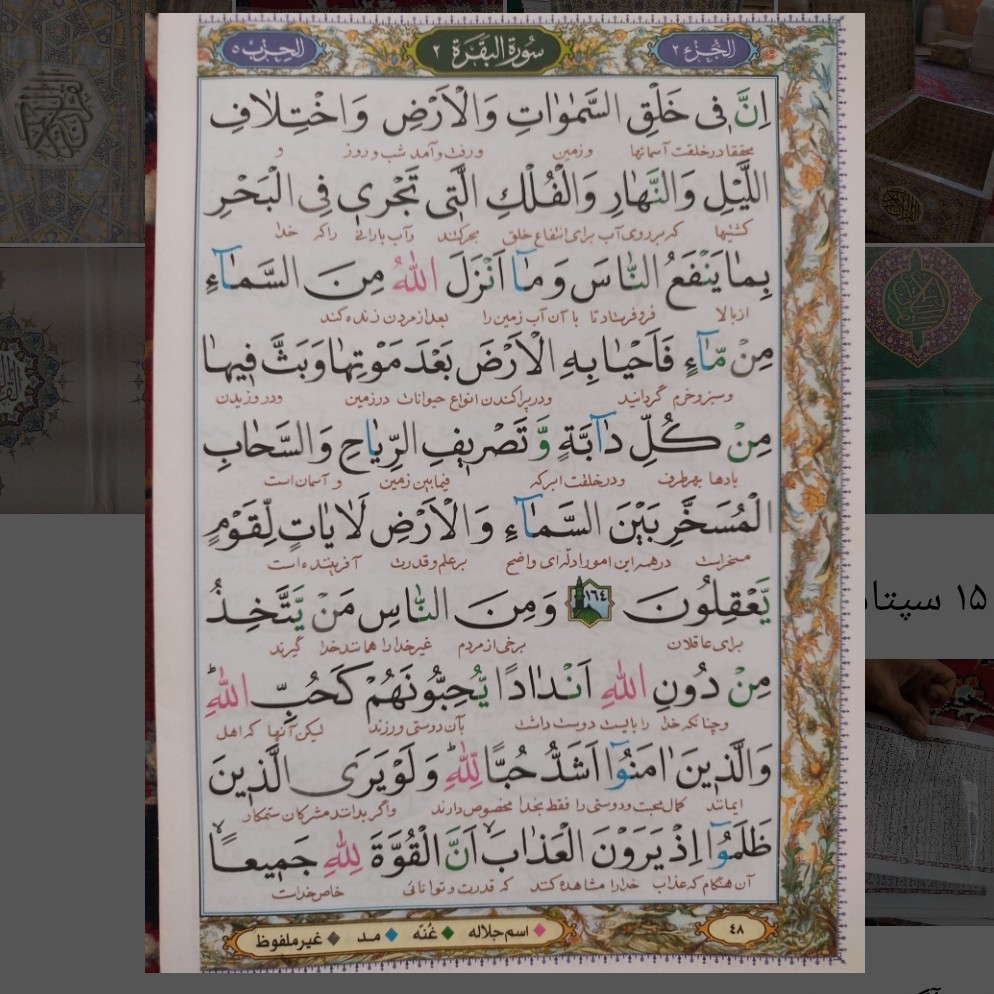 الجزء ٢
سورة البقرة ٢
الحزب ٥
اِنَّ فی خَلْقِ السَّمٰوٰاتِ وَالْاَرْضِ وَاخْتِلٰافِ
محققا در خلقت آسمانها و زمین و رفت و آمد شب و روز و
اللَّیْلِ وَالنَّهٰارِ وَالْفُلْكِ الَّتی تَجْری فِی الْبَحْرِ
کشتیها که بر روی آب برای انتفاع خلق بحرکتند و آب بارانی را که خدا
بِمٰا یَنْفَعُ النّٰاسَ وَ مٰٓا اَنْزَلَ اللّٰهُ مِنَ السَّمٰٓاءِ
از بالا فرو فرستاد تا با آن آب زمین را بعد از مردن زنده کند
مِنْ مّٰٓاءٍ فَاَحْیٰا بِهِ الْاَرْضَ بَعْدَ مَوْتِهٰا وَبَثَّ فیهٰا
و سبز و خرم گردانید و در پراکندن انواع حیوانات در زمین و در وزیدن
مِنْ كُلِّ دٰٓابَّةٍ وَّ تَصْریفِ الرِّیٰاحِ وَ السَّحٰابِ
بادها بهر طرف و در خلقت ابر که فیما بین زمین و آسمان است
الْمُسَخَّرِ بَیْنَ السَّمٰٓاءِ وَ الْاَرْضِ لَاٰیٰاتٍ لِّقَوْمٍ
مسخر است در همه این امور ادله‌ای واضح بر علم و قدرت آفریننده است
یَّعْقِلُونَ ١٦٤ وَ مِنَ النّٰاسِ مَنْ یَّتَّخِذُ
برای عاقلان برخی از مردم غیر خدا را همانند خدا گیرند
مِنْ دُونِ اللّٰهِ اَنْدٰادًا یُّحِبُّونَهُمْ كَحُبِّ اللّٰهِ ؕ
و چنانکه خدا را بایست دوست داشت بآن دوستی ورزند لیکن آنها که اهل
وَالَّذینَ اٰمَنُوٓا اَشَدُّ حُبًّا لِلّٰهِ ؕ وَ لَوْ یَرَی الَّذینَ
ایمانند کمال محبت و دوستی را فقط بخدا مخصوص دارند و اگر بدانند مشرکان ستمکار
ظَلَمُوٓا اِذْ یَرَوْنَ الْعَذٰابَ اَنَّ الْقُوَّةَ لِلّٰهِ جَمیعًا
آن هنگام که عذاب خدا را مشاهده کنند که قدرت و توانائی خاص خداست
٤٨
اسم جلاله غُنّه مد غیر ملفوظ
١٥ سپتا